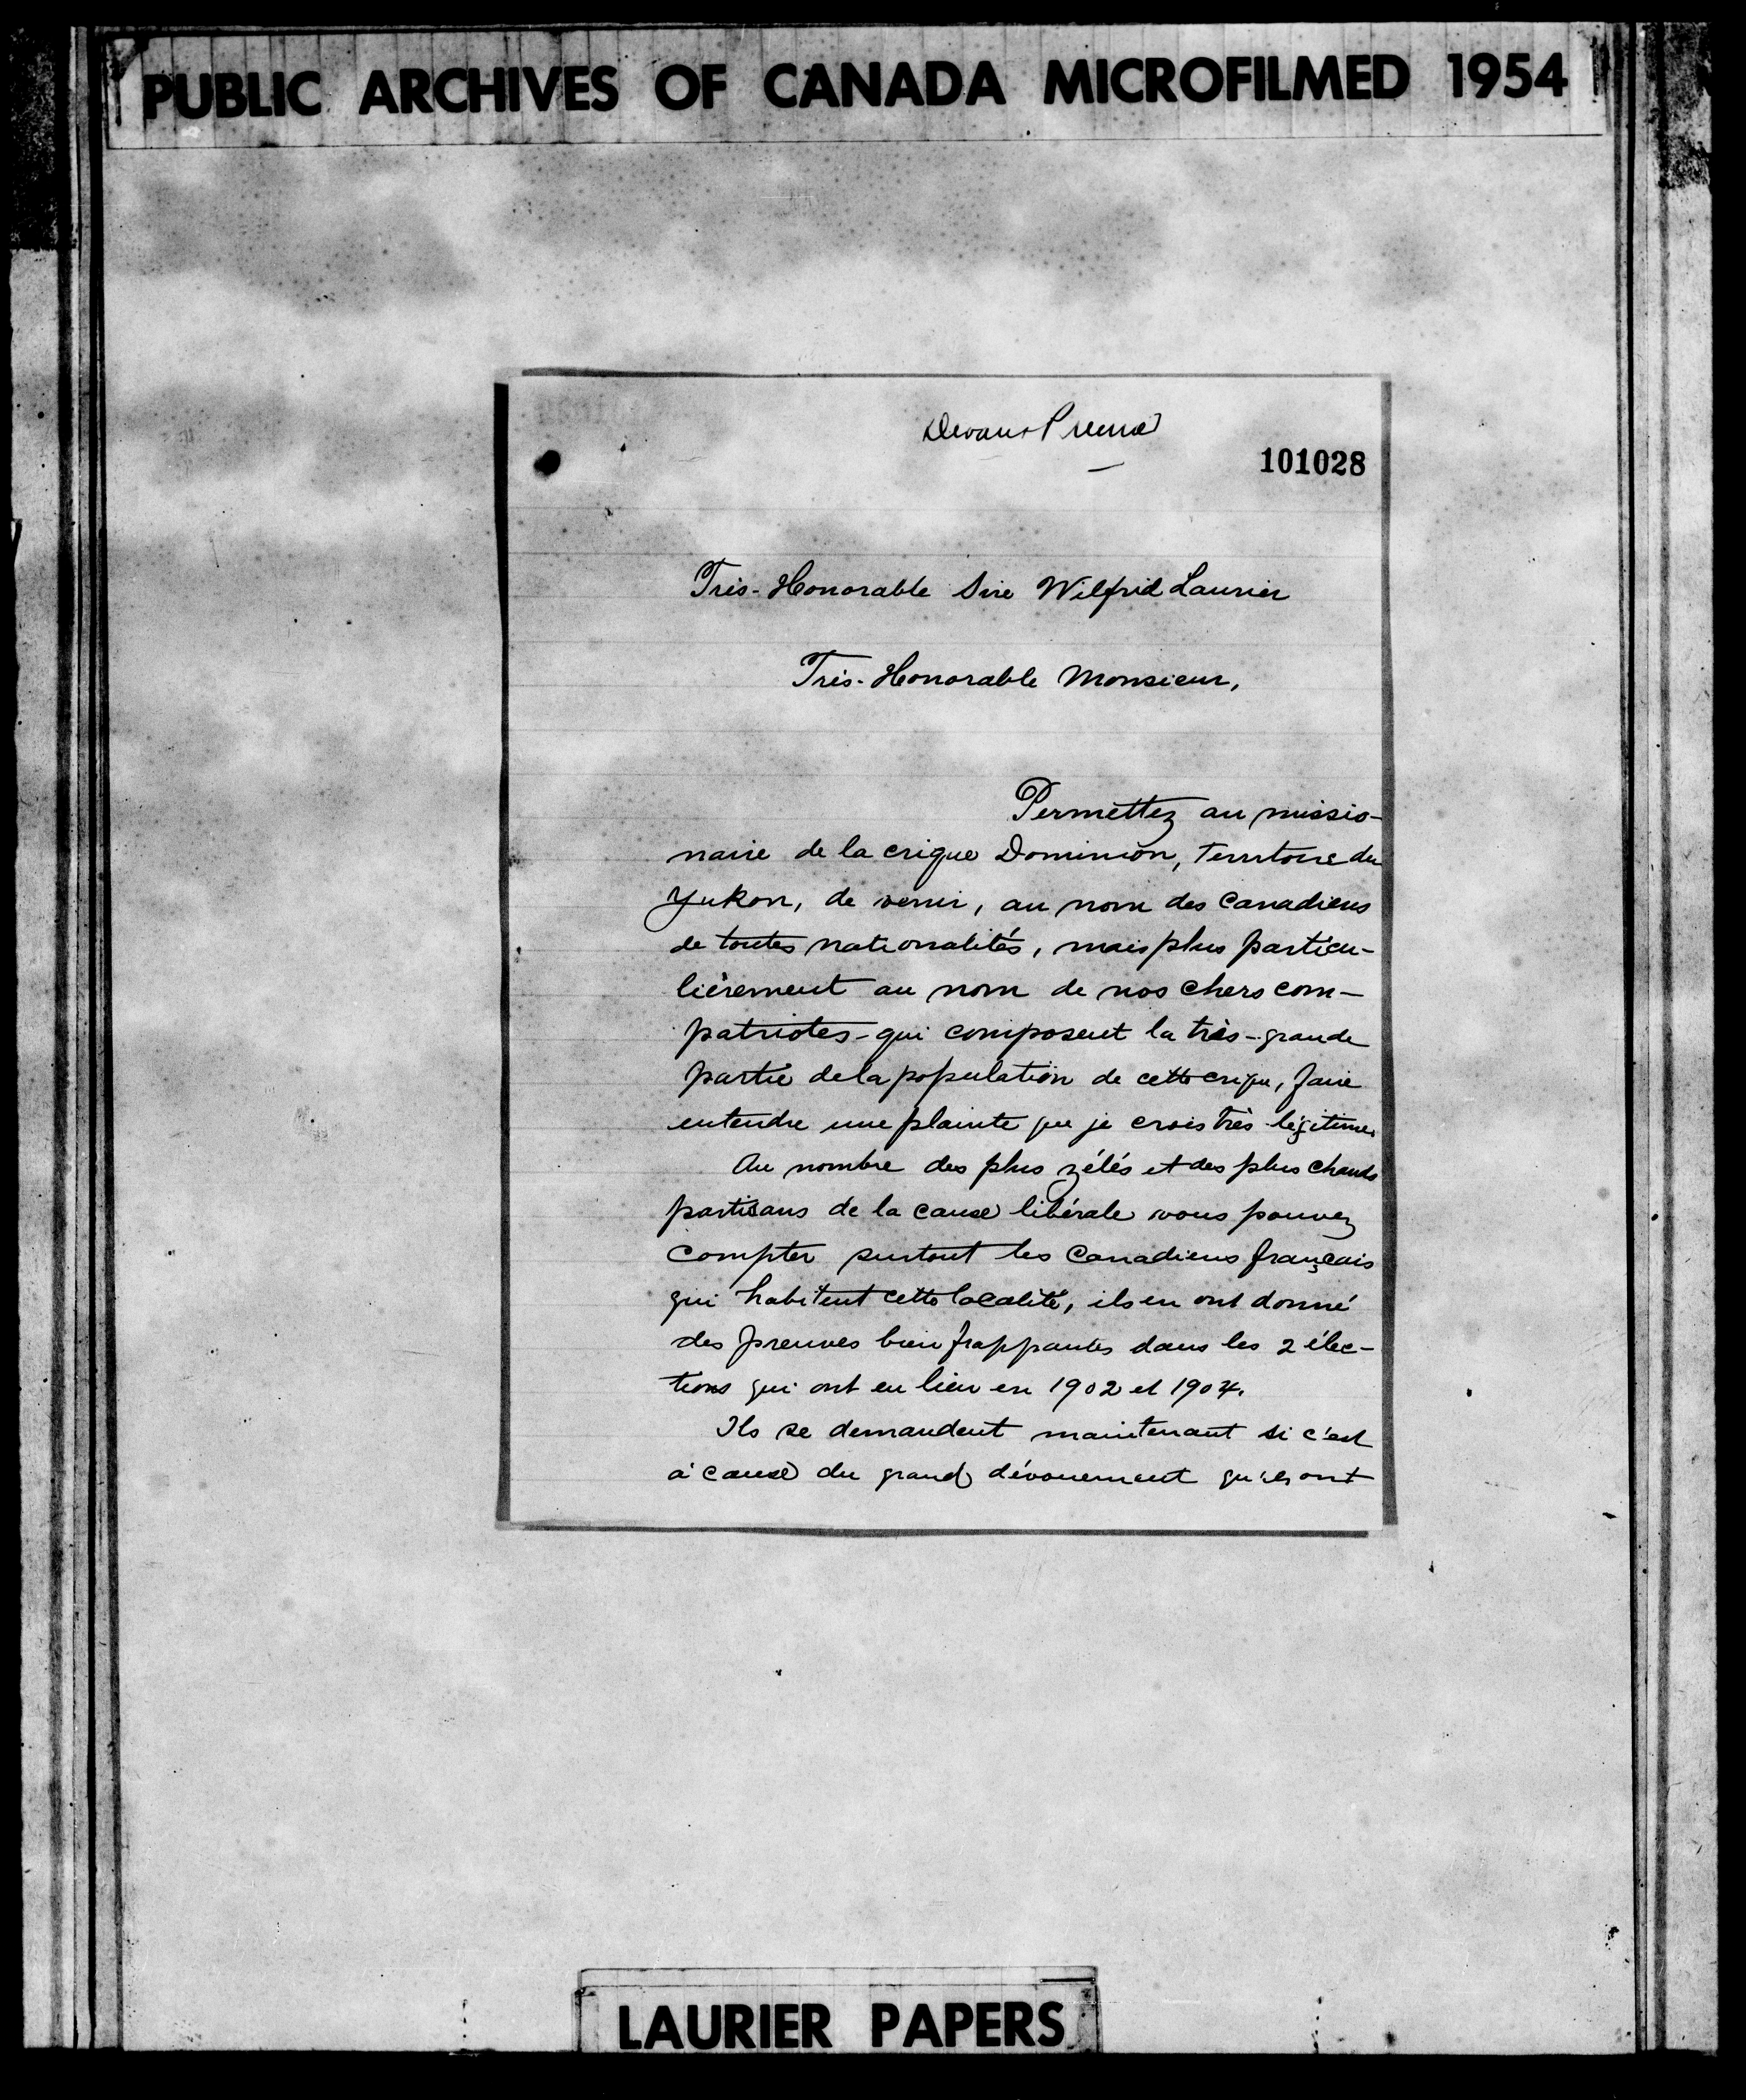 PUBLIC ARCHIVES OF CANADA MICROFILMED 1954
101028
Très-Honorable Sire Wilfrid Laurier
Très-Honorable Monsieur,
Permettez au missio-
naire de la crique Dominion, Territoire du
Yukon, de venir, au nom des Canadiens
de toutes nationalités, mais plus particu-
lièrement au nom de nos chers com-
patriotes - qui composent la très-grande
partie de la population de cette crique, faire
entendre une plainte que je crois très légitime.
Au nombre des plus zélés et des plus chauds
partisans de la cause libérale vous pouvez
compter surtout les Canadiens français
qui habitent cette localité, ils en ont donné
des preuves bien frappantes dans les 2 élec-
tions qui ont eu lieu en 1902 et 1904.
Ils se demandent maintenant si c'est
à cause du grand dévouement qu'ils ont
LAURIER PAPERS